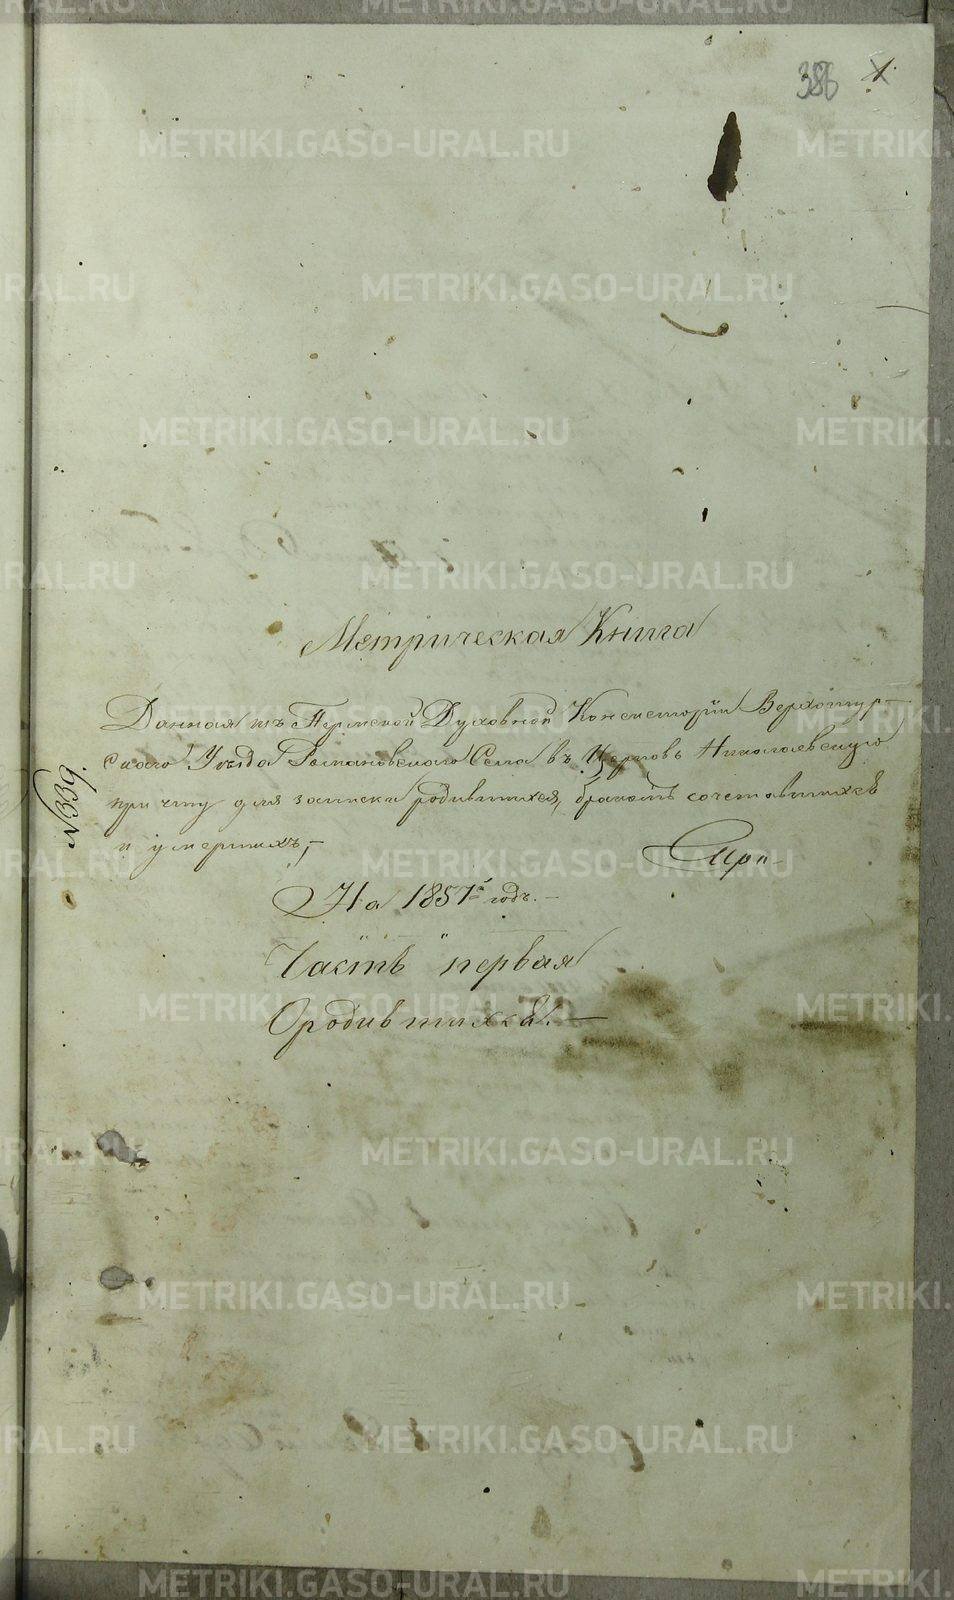 386 1
Метрическая Книга
Данная изъ Пермской Духовной Консисторіи Верхотур-
скаго Уѣзда Романовскаго Села въ Церковь Николаевскую
причту для записки родившихся, бракомъ сочетавшихся
и умершихъ,
На 1857й годъ.
Часть первая
О родившихся.
№339.
METRIKI.GASO-URAL.RU